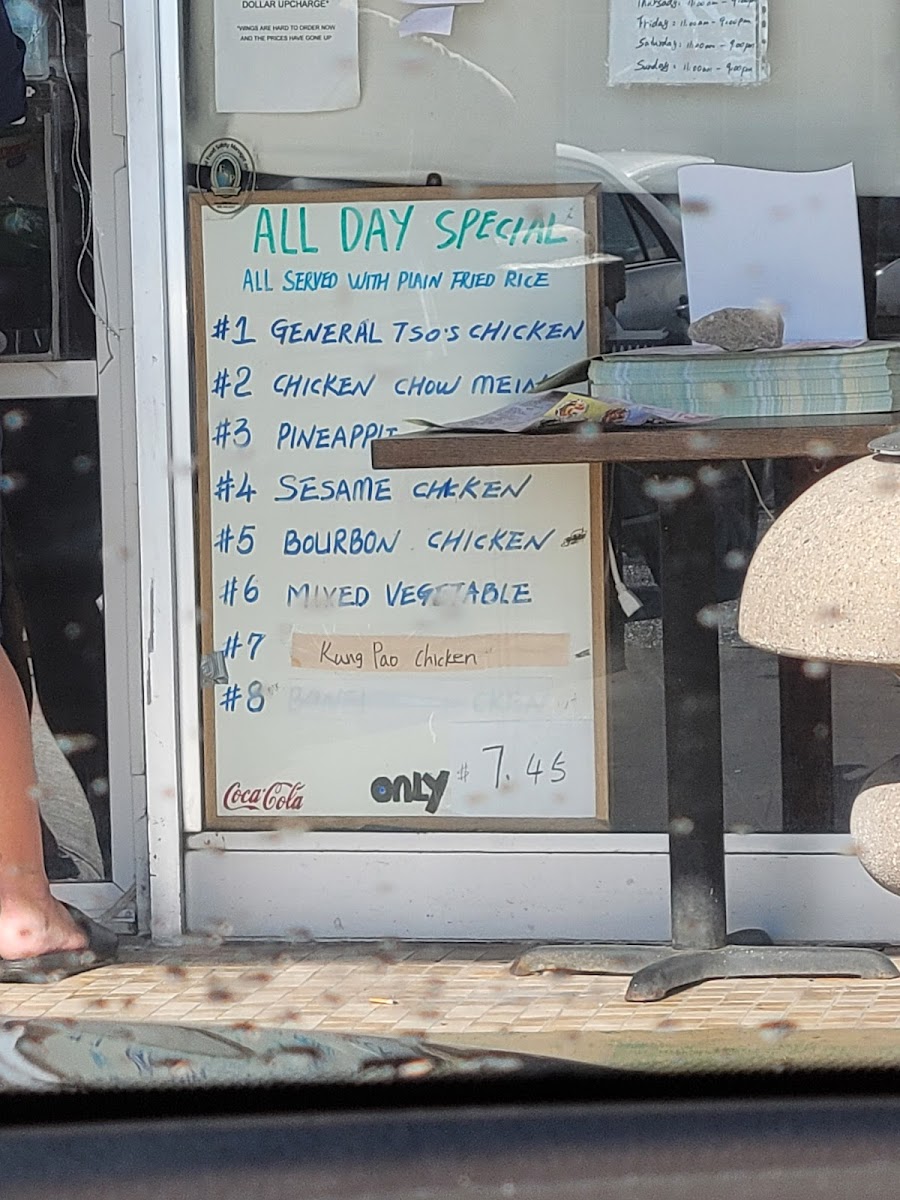 DOLLAR UPCHARGE*
*WINGS ARE HARD TO ORDER NOW
AND THE PRICES HAVE GONE UP
Friday: 11:00am - 9:00pm
Saturday: 11:00am - 9:00pm
Sunday: 11:00am - 9:00pm
ALL DAY SPECIAL
ALL SERVED WITH PLAIN FRIED RICE
#1 GENERAL TSO'S CHICKEN
#2 CHICKEN CHOW MEIN
#3
#4 SESAME CHICKEN
#5 BOURBON CHICKEN
#6 MIXED VEGETABLE
#7 Kung Pao Chicken
#8
Coca-Cola
ONLY $7.45